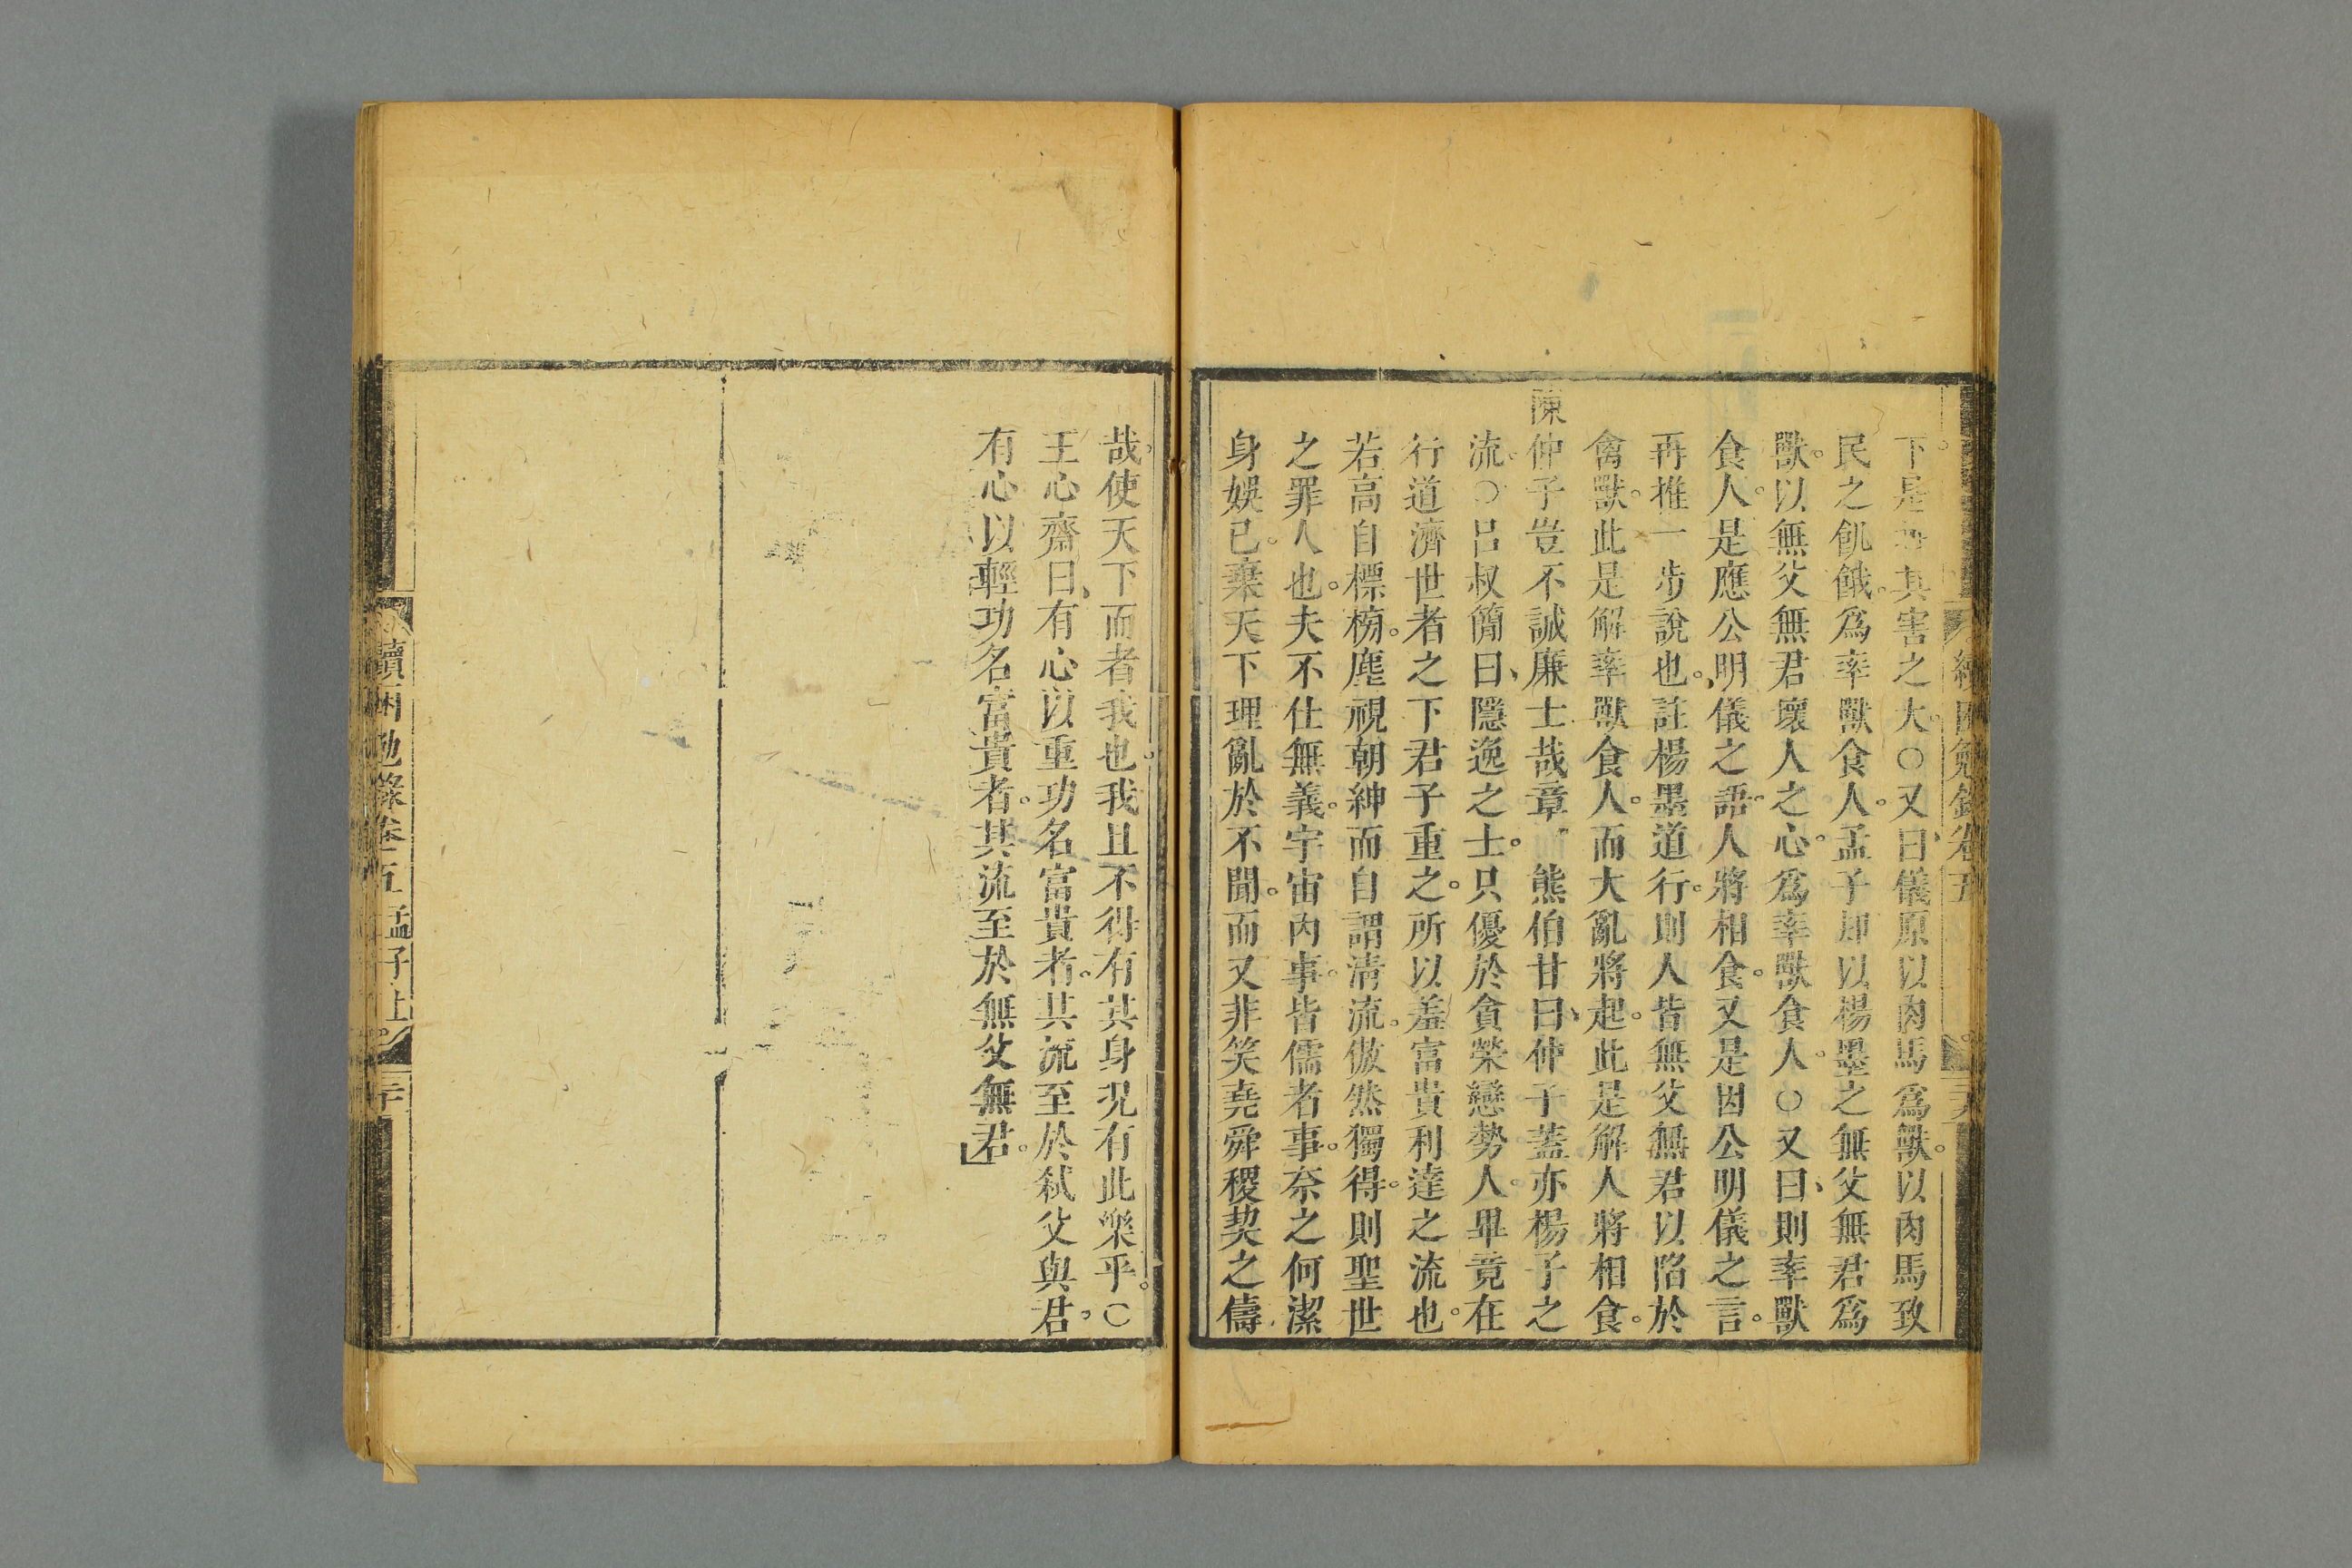 下。是□其害之大。○又曰、儀原以肉馬爲獸。以肉馬致
民之飢餓。爲率獸食人。孟子却以楊墨之無父無君爲
獸。以無父無君壞人之心。爲率獸食人。○又曰、則率獸
食人。是應公明儀之語、人將相食。又是因公明儀之言。
再推一步說也。註楊墨道行。則人皆無父無君以陷於
禽獸。此是解率獸食人。而大亂將起。此是解人將相食。
陳仲子豈不誠廉士哉章　熊伯甘曰、仲子蓋亦楊子之
流。○呂叔簡曰、隱逸之士。只優於貪榮戀勢人。畢竟在
行道濟世者之下君子重之。所以羞富貴利達之流也。
若高自標榜。塵視朝紳而自謂淸流。傲然獨得。則聖世
之罪人也。夫不仕無義。宇宙內事。皆儒者事。奈之何潔
身娛己。棄天下理亂於不聞。而又非笑堯舜稷契之儔
哉。使天下而者我也。我且不得有其身況有此樂乎。○
王心齋曰、有心以重功名富貴者。其流至於弒父與君。
有心以輕功名富貴者。其流至於無父無君。」
續困勉錄卷五
續困勉錄卷五 孟子上